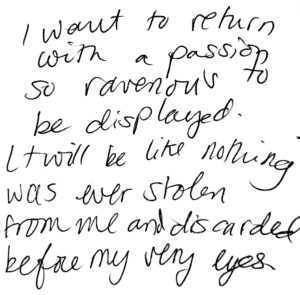 I want to return
with a passion
so ravenous to
be displayed.
It will be like nothing
was ever stolen
from me and discarded
before my very eyes.